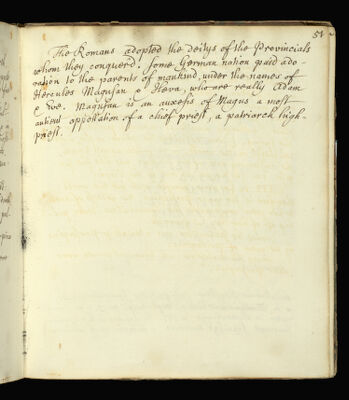 51
The Romans adopted the deitys of the Provincials
whom they conquerd. some German nation paid ado-
ration to the parents of mankind, under the names of
Hercules Magusan & Hæva, who are really Adam
& Eve. Magusan is an auxesis of Magus a most
antient appellation of a chief priest, a patriarch high-
priest.